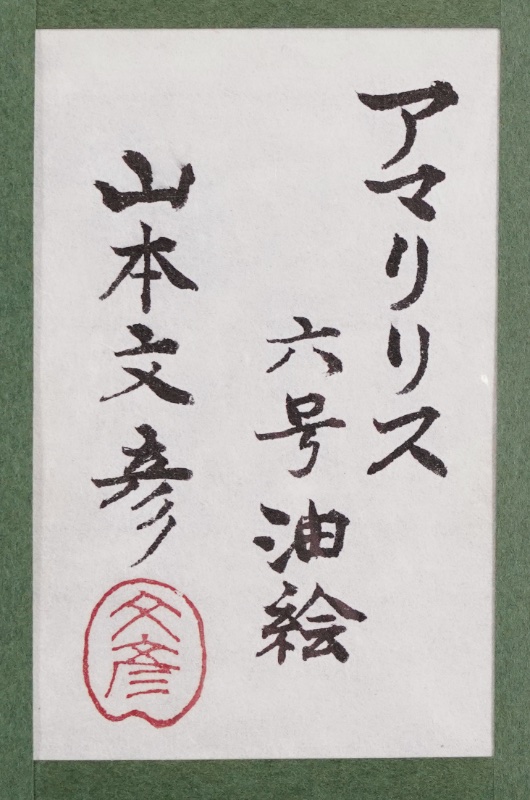 アマリリス
六号油絵
山本文彦
文彦